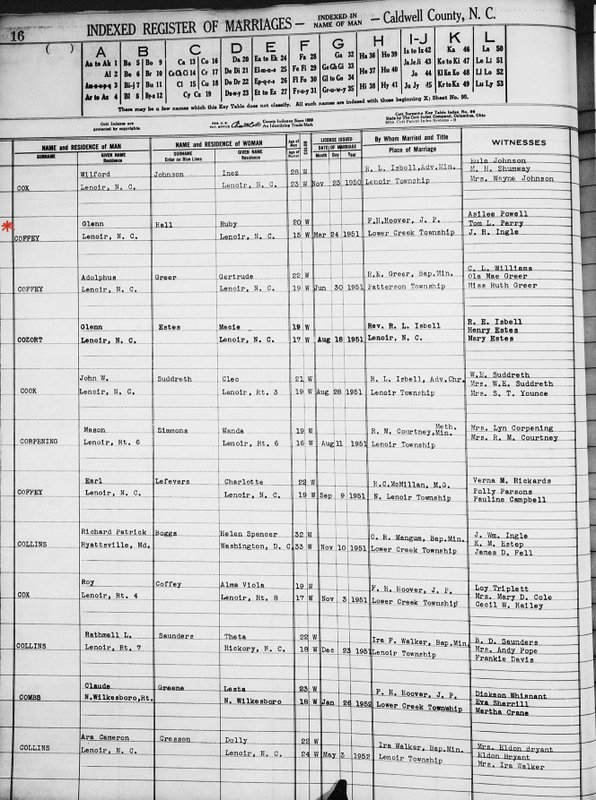 16
INDEXED REGISTER OF MARRIAGES — INDEXED IN NAME OF MAN — Caldwell County, N. C.
( )
A B C D E F G H I-J K L
Aa to Ak 1 Ba 5 Bo 9 Ca 13 Co 16 Da 20 Ea to Ek 24 Fa 28 Ga 32 Ha 36 Ho 39 Ia to Iz 42 Ka 46 La 50
Al 2 Be 6 Br 10 Ce Ch Ci 14 Cr 17 De Di 21 Fe Fi 29 Ge Gh Gi 33 He 37 Ja Je Ji 43 Ke to Ki 47 Le Li 51
Bi-j 7 Bu 11 Cl 15 Cu 18 Do Dr 22 Fl Fo 30 Gl to Go 34 Hu 40 Jo 44 Kl Kn Ko 48 Lo 52
Ar to Az 4 Bl 8 By-z 12 Cy Cz 19 Du-w-y 23 Et to Ez 27 Fr-u-y 31 Gr-u-w-y 35 Hi 38 Hy 41 Ju Jy 45 Kr to Kz 49 Lu Ly 53
There may be a few names which this Key Table does not classify. All such names are indexed under those beginning X; Sheet No. 98.
Cott Indexes are protected by copyrights.
County Indexes Since 1888
An Identifying Trade Mark
Made by The Cott Index Company, Columbus, Ohio
NAME and RESIDENCE of MAN NAME and RESIDENCE of WOMAN Age of Man Age of Woman COLOR LICENSE ISSUED DATE OF MARRIAGE By Whom Married and Title WITNESSES
SURNAME GIVEN NAME Residence SURNAME Enter on Blue Lines GIVEN NAME Residence Month Day Year Place of Marriage
Wilford Johnson Inez 28 W R. L. Isbell, Adv. Min. Eula Johnson
M. H. Shumway
COX Lenoir, N. C. Lenoir, N. C. 23 W Nov 23 1950 Lenoir Township Mrs. Wayne Johnson
* Glenn Hall Ruby 20 W F.H.Hoover, J. P. Asilee Powell
Tom L. Perry
COFFEY Lenoir, N. C. Lenoir, N. C. 15 W Mar 24 1951 Lower Creek Township J. R. Ingle
Adolphus Greer Gertrude 22 W R.E. Greer, Bap.Min. C. L. Williams
Ola Mae Greer
COFFEY Lenoir, N. C. Lenoir, N. C. 19 W Jun 30 1951 Patterson Township Miss Ruth Greer
Glenn Estes Macie 19 W Rev. R. L. Isbell R. E. Isbell
Henry Estes
COZORT Lenoir, N. C. Lenoir, N. C. 17 W Aug 18 1951 Lenoir, N. C. Mary Estes
John W. Suddreth Cleo 21 W R. L. Isbell, Adv.Chr. W.E. Suddreth
Mrs. W.E. Suddreth
COOK Lenoir, N. C. Lenoir, Rt. 3 19 W Aug 28 1951 Lenoir Township Mrs. S. T. Younce
Mason Simmons Wanda 19 W R. M. Courtney, Meth. Min. Mrs. Lyn Corpening
CORPENING Lenoir, Rt. 6 Lenoir, Rt. 6 16 W Aug 11 1951 Lenoir Township Mrs. R. M. Courtney
Earl Lefevers Charlotte 22 W H.C.McMillan, M.G. Verna M. Rickards
Polly Parsons
COFFEY Lenoir, N. C. Lenoir, N. C. 19 W Sep 9 1951 N. Lenoir Township Pauline Campbell
Richard Patrick Boggs Helen Spencer 32 W C. R. Mangum, Bap.Min. J. Wm. Ingle
K. M. Estep
COLLINS Hyattsville, Md. Washington, D. C. 33 W Nov 10 1951 Lower Creek Township James D. Fell
Roy Coffey Alma Viola 19 W F. H. Hoover, J. P. Loy Triplett
Mrs. Mary D. Cole
COX Lenoir, Rt. 4 Lenoir, Rt. 8 17 W Nov 3 1951 Lower Creek Township Cecil W. Hailey
Rathmell L. Saunders Theta 22 W Ira F. Walker, Bap.Min. B. D. Saunders
Mrs. Andy Pope
COLLINS Lenoir, Rt. 7 Hickory, N. C. 18 W Dec 23 1951 Lenoir Township Frankie Davis
Claude Greene Lesta 23 W F. H. Hoover, J. P. Dickson Whisnant
Eva Sherrill
COMBS N.Wilkesboro,Rt. N. Wilkesboro 18 W Jan 26 1952 Lower Creek Township Martha Crane
Ara Cameron Cresson Dolly 22 W Ira Walker, Bap.Min. Mrs. Eldon Bryant
Eldon Bryant
COLLINS Lenoir, N. C. Lenoir, N. C. 24 W May 3 1952 Lenoir Township Mrs. Ira Walker